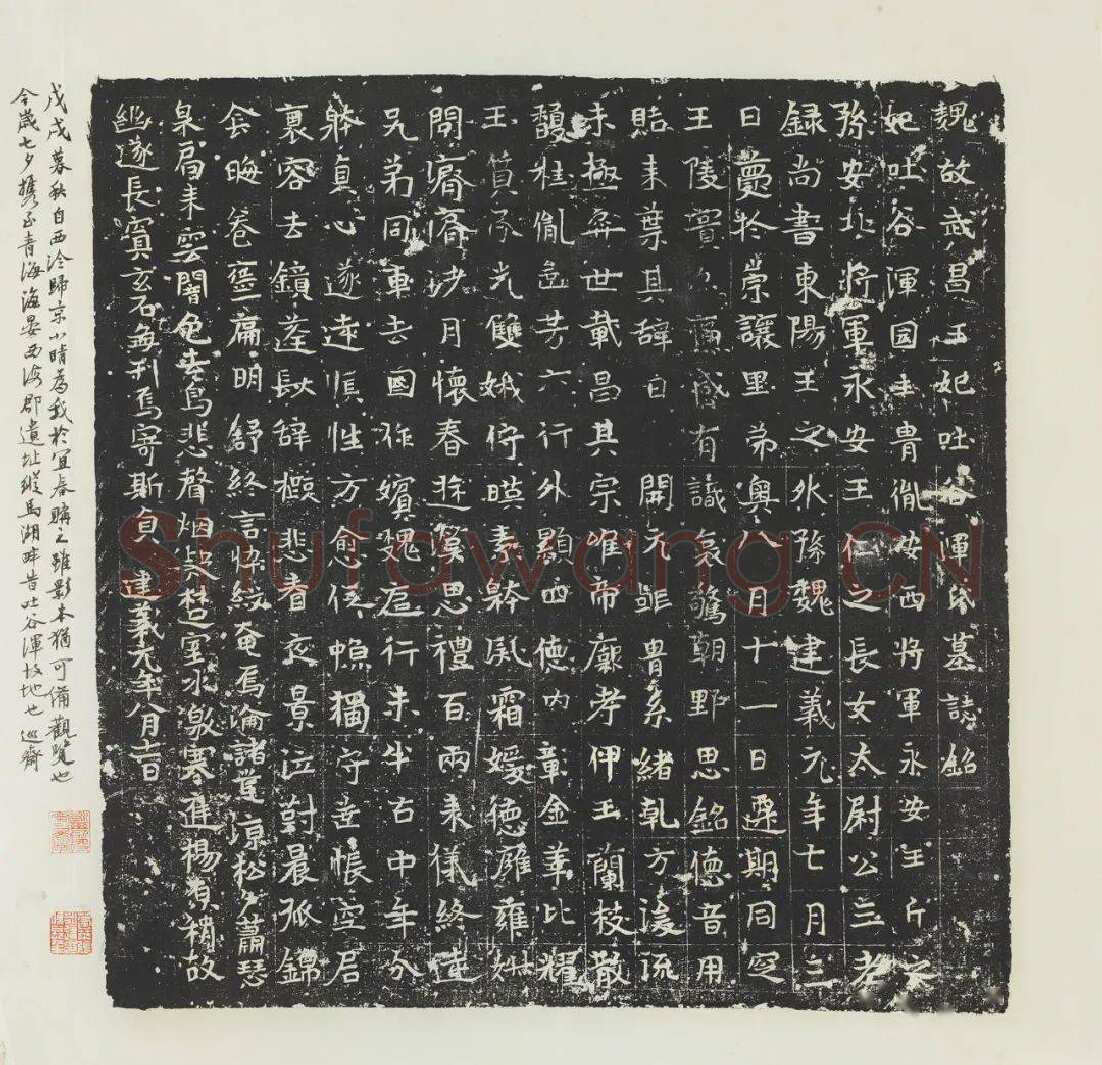 魏故武昌王妃吐谷渾氏墓誌銘
妃吐谷渾国主胄胤安西將軍永安王斤之
孫安北將軍永安王仁之長女太尉公三老
録尚書東陽王之外孫魏建義元年七月三
日薨於崇讓里苐粤八月十一日遷期同空
王陵賓僚齎感有識哀驚朝野思銘德音用
貽来葉其辞曰 開元誕胄系緒乹方濬流
未極弈世載昌其宗唯帝厥孝伊王蘭枝散
馥桂胤芳六行外顯四德内彰金華比耀
王質承光雙娥佇暎素艶凝霜媛德雍雍姓
問濟濟涉月懷春遊漢思禮百兩来儀終遠
兄弟同車去國作嬪魏庭行未半古中年分
躰真心遂遠慎性方愈侵幌獨守垂帳空居
褱容去鏡落長辞櫬悲春夜景泣對晨孤錦
衾晦卷痛明舒終言悼紋奄焉淪諸壟涼松夕蕭瑟
泉扃耒雲闇色去鳥悲聲烟楚塞水激寒進楊質穨故
幽遂長賓玄石命刊焉寄斯貞 建義元年八月十一日
戊戌暮秋自西泠歸京小晴為我於宜春購之雖影本猶可備觀覽也
今歲七夕攜至青海海晏西海郡遺址縱馬湖畔昔吐谷渾故地也 巡齋
Shufawang.CN